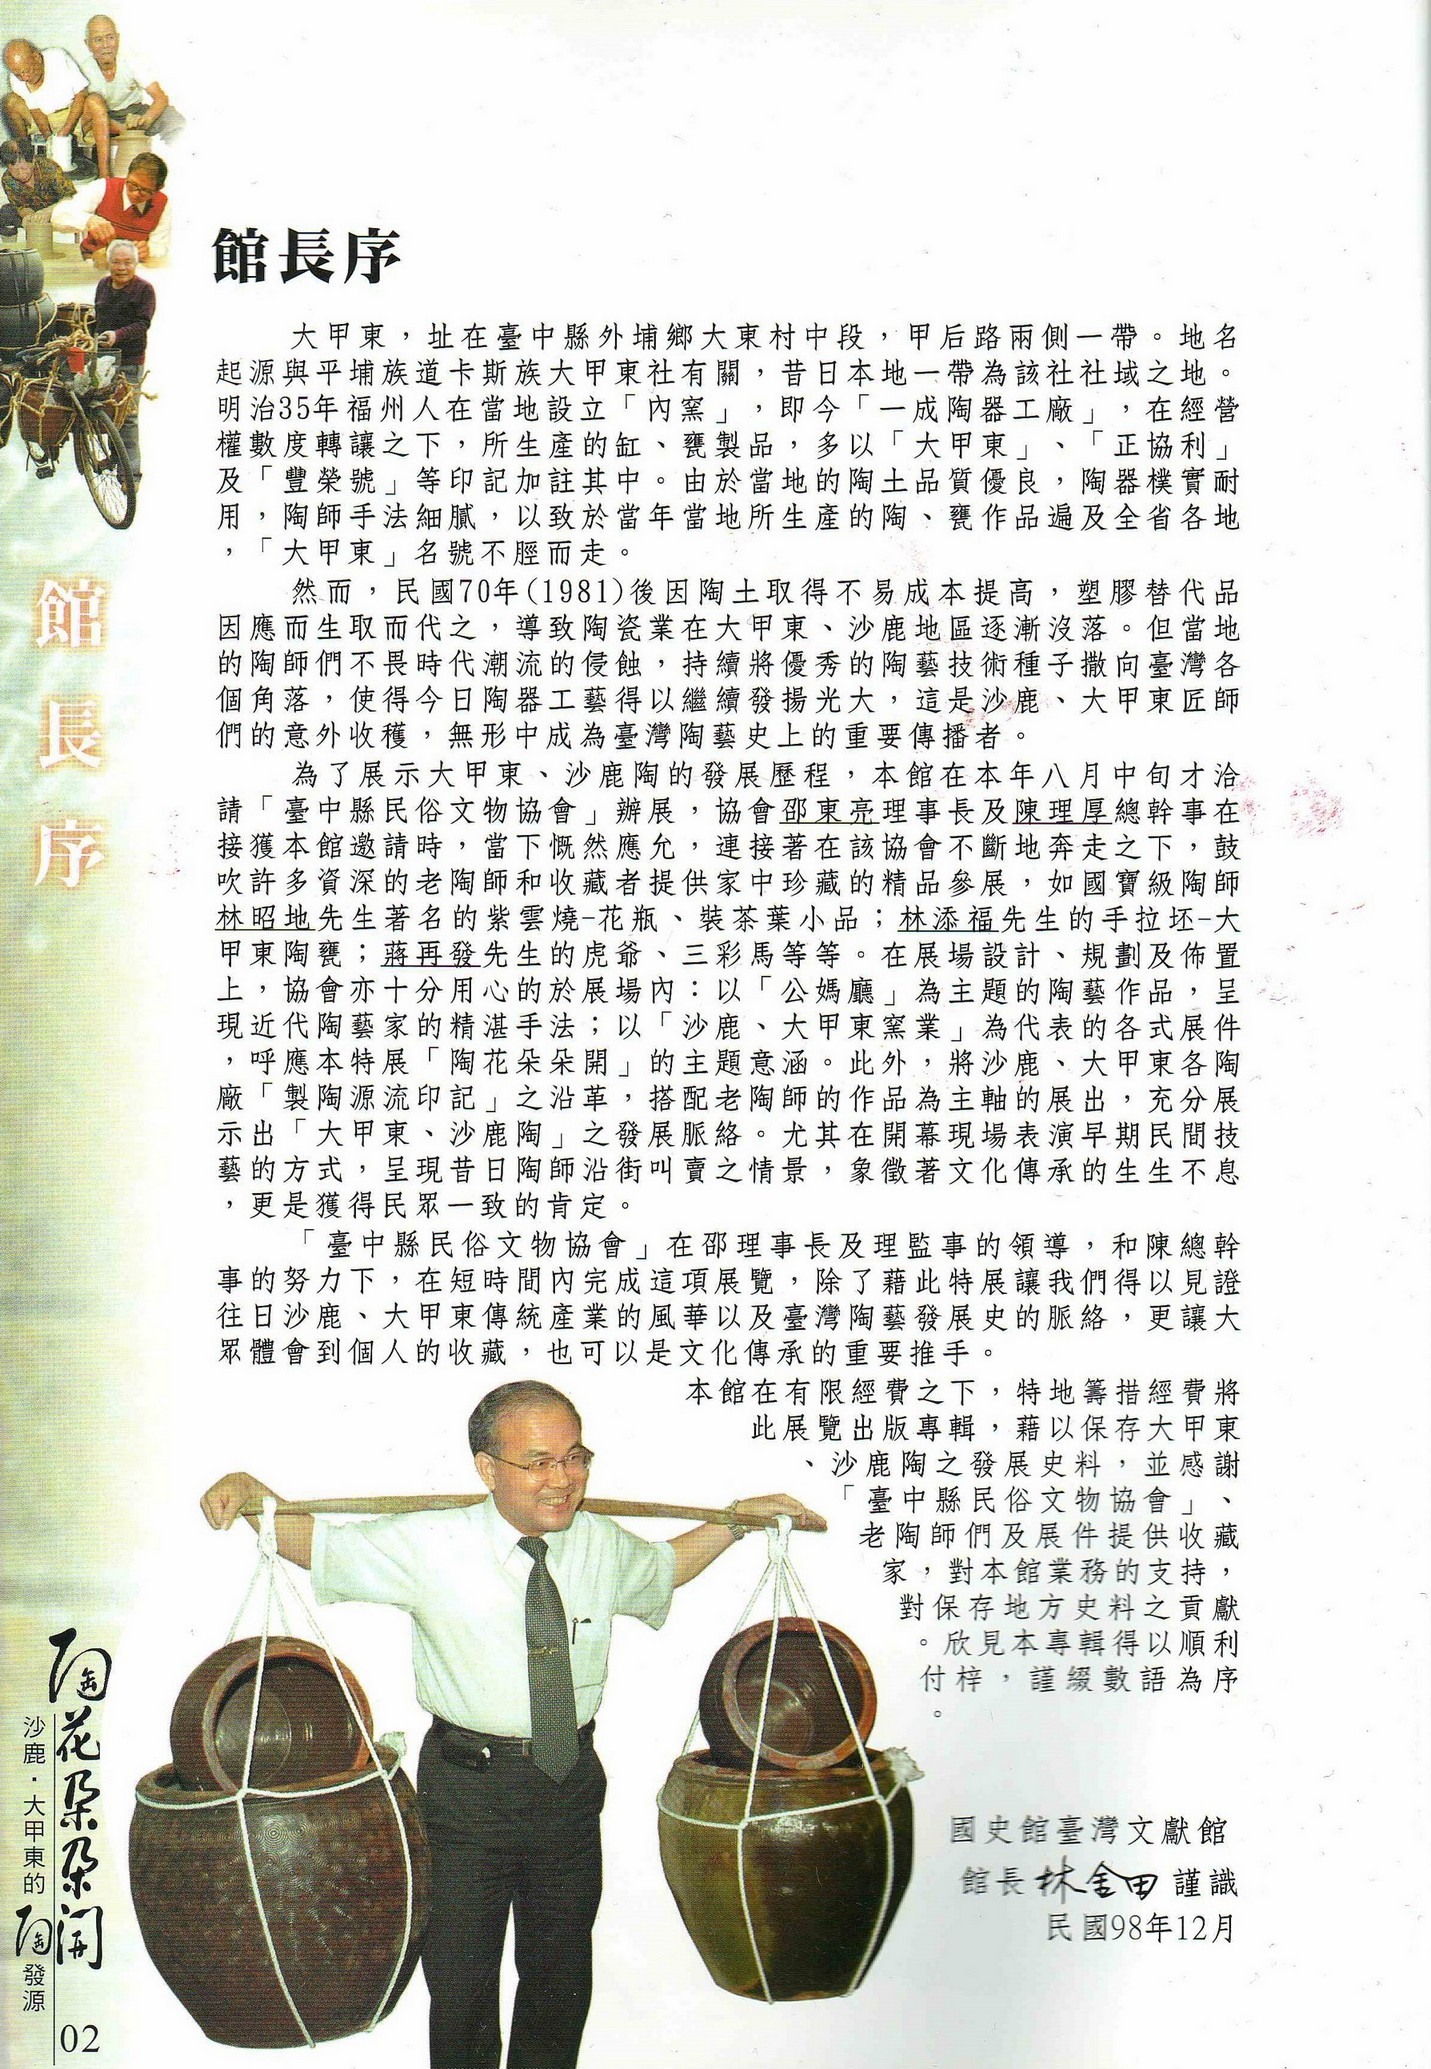 館長序
大甲東，址在臺中縣外埔鄉大東村中段，甲后路兩側一帶。地名
起源與平埔族道卡斯族大甲東社有關，昔日本地一帶為該社社域之地。
明治35年福州人在當地設立「內窯」，即今「一成陶器工廠」，在經營
權數度轉讓之下，所生產的缸、甕製品，多以「大甲東」、「正協利」
及「豐榮號」等印記加註其中。由於當地的陶土品質優良，陶器樸實耐
用，陶師手法細膩，以致於當年當地所生產的陶、甕作品遍及全省各地
，「大甲東」名號不脛而走。
然而，民國70年(1981)後因陶土取得不易成本提高，塑膠替代品
因應而生取而代之，導致陶瓷業在大甲東、沙鹿地區逐漸沒落。但當地
的陶師們不畏時代潮流的侵蝕，持續將優秀的陶藝技術種子撒向臺灣各
個角落，使得今日陶器工藝得以繼續發揚光大，這是沙鹿、大甲東匠師
們的意外收穫，無形中成為臺灣陶藝史上的重要傳播者。
為了展示大甲東、沙鹿陶的發展歷程，本館在本年八月中旬才洽
請「臺中縣民俗文物協會」辦展，協會邵東亮理事長及陳理厚總幹事在
接獲本館邀請時，當下慨然應允，連接著在該協會不斷地奔走之下，鼓
吹許多資深的老陶師和收藏者提供家中珍藏的精品參展，如國寶級陶師
林昭地先生著名的紫雲燒-花瓶、裝茶葉小品；林添福先生的手拉坯-大
甲東陶甕；蔣再發先生的虎爺、三彩馬等等。在展場設計、規劃及佈置
上，協會亦十分用心的於展場內：以「公媽廳」為主題的陶藝作品，呈
現近代陶藝家的精湛手法；以「沙鹿、大甲東窯業」為代表的各式展件
，呼應本特展「陶花朵朵開」的主題意涵。此外，將沙鹿、大甲東各陶
廠「製陶源流印記」之沿革，搭配老陶師的作品為主軸的展出，充分展
示出「大甲東、沙鹿陶」之發展脈絡。尤其在開幕現場表演早期民間技
藝的方式，呈現昔日陶師沿街叫賣之情景，象徵著文化傳承的生生不息
，更是獲得民眾一致的肯定。
「臺中縣民俗文物協會」在邵理事長及理監事的領導，和陳總幹
事的努力下，在短時間內完成這項展覽，除了藉此特展讓我們得以見證
往日沙鹿、大甲東傳統產業的風華以及臺灣陶藝發展史的脈絡，更讓大
眾體會到個人的收藏，也可以是文化傳承的重要推手。
本館在有限經費之下，特地籌措經費將
此展覽出版專輯，藉以保存大甲東
、沙鹿陶之發展史料，並感謝
「臺中縣民俗文物協會」、
老陶師們及展件提供收藏
家，對本館業務的支持，
對保存地方史料之貢獻
。欣見本專輯得以順利
付梓，謹綴數語為序
。
國史館臺灣文獻館
館長林金田謹識
民國98年12月
館長序
陶花朵朵開
沙鹿·大甲東的陶發源
02